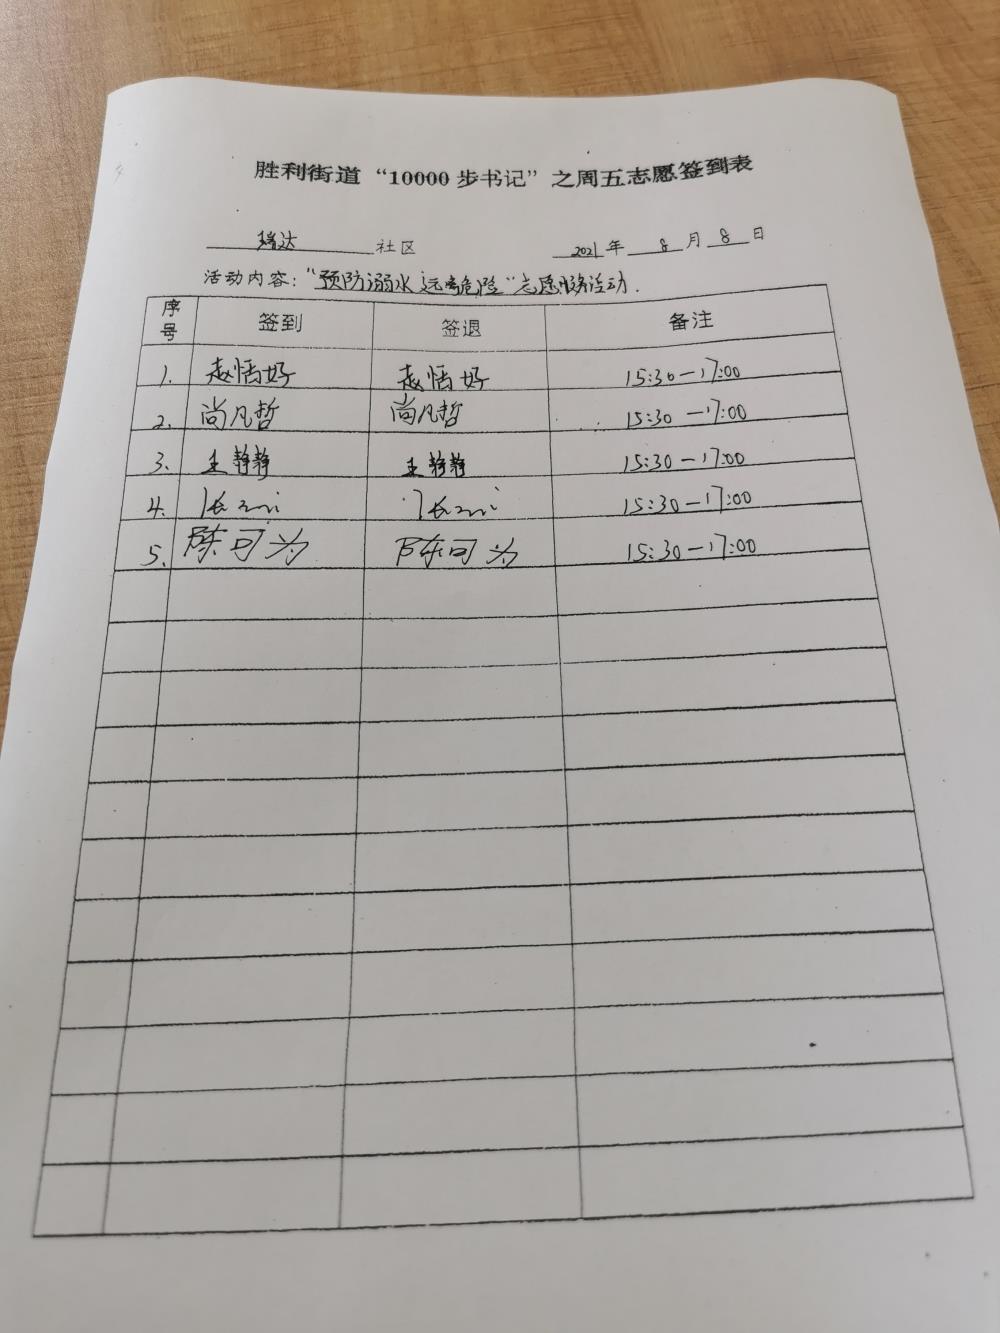 胜利街道“10000步书记”之周五志愿签到表
瑞达 社区 2021年 8 月 8 日
活动内容：“预防溺水 远离危险”志愿服务活动.
序号 签到 签退 备注
1. 赵恬好 赵恬好 15:30-17:00
2. 尚凡哲 尚凡哲 15:30-17:00
3. 王静静 王静静 15:30-17:00
4. 张 张 15:30-17:00
5. 陈可为 陈可为 15:30-17:00